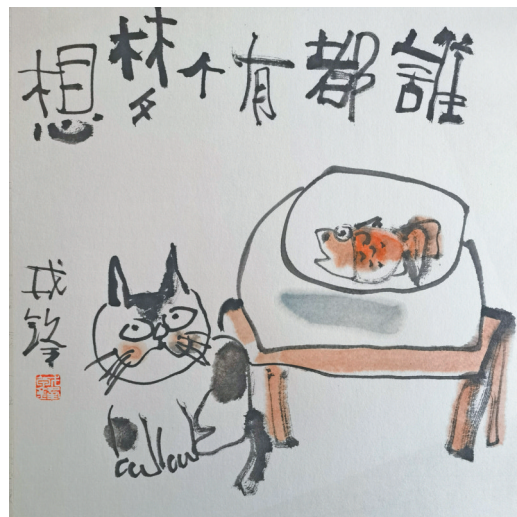 誰都有个梦想
戎鋒